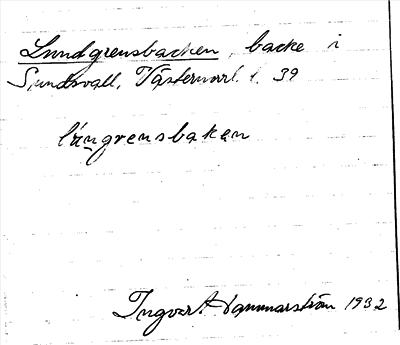 Lundgrensbacken, backe i
Sundsvall, Västernorrl. l. 39
lüngrensbaken
Ingvar Hammarström 1932